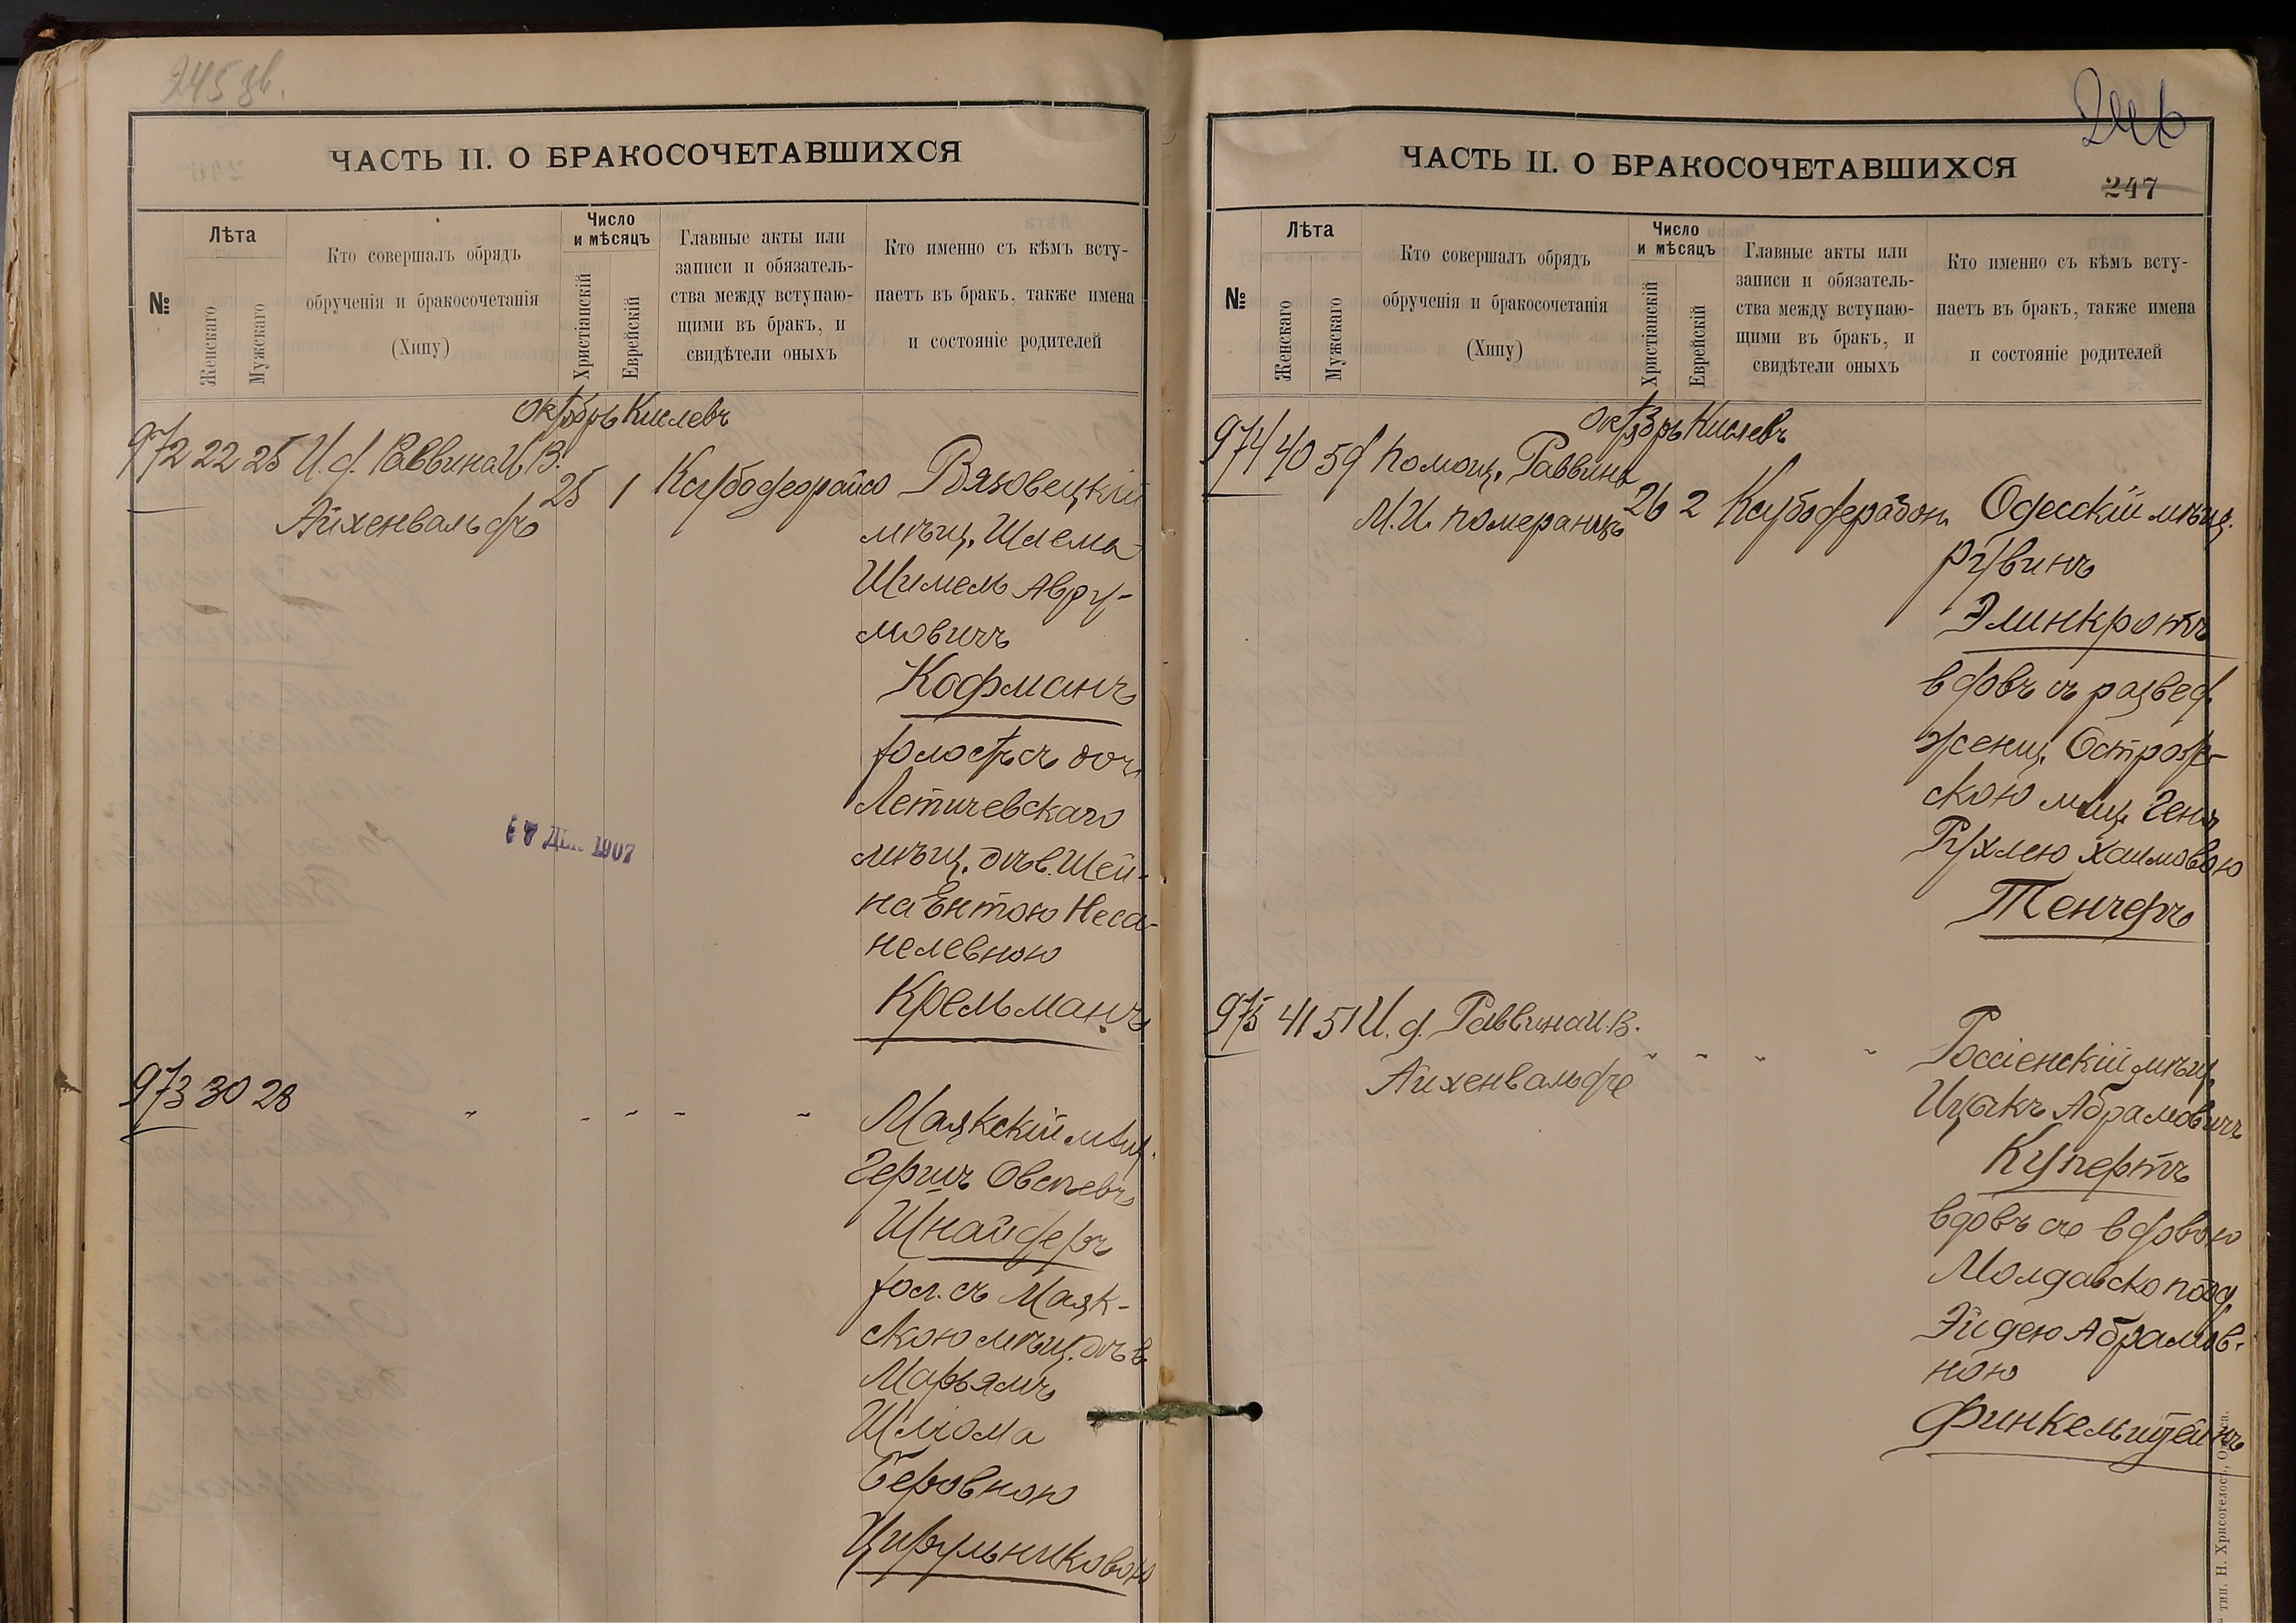 245 зв.
ЧАСТЬ II. О БРАКОСОЧЕТАВШИХСЯ
№
Лѣта
Женскаго
Мужскаго
Кто совершалъ обрядъ
обрученія и бракосочетанія
(Хипу)
Число
и мѣсяцъ
Христіанскій
Еврейскій
Главные акты или
записи и обязатель-
ства между вступаю-
щими въ бракъ, и
свидѣтели оныхъ
Кто именно съ кѣмъ всту-
паетъ въ бракъ, также имена
и состояніе родителей
Октябрь Кислевъ
972 22 25 И. д. Раввина И. В.
Айхенвальдъ
25 1
Вязовецкій
мѣщ. Шлема
Шимель Авру-
мовичъ
Кофманъ
холостъ съ доч.
Летичевскаго
мѣщ. дѣв. Шей-
на Ентою Неса-
нелевною
Крельманъ
17 Дек. 1907
973 30 28 " " " " "
Маякскій мѣщ.
Гершъ Овсѣевъ
Шнайдеръ
хол. съ Маяк-
скою мѣщ. дѣв.
Марьямъ
Шліома
Беровною
Цирульниковою
246
ЧАСТЬ II. О БРАКОСОЧЕТАВШИХСЯ
247
№
Лѣта
Женскаго
Мужскаго
Кто совершалъ обрядъ
обрученія и бракосочетанія
(Хипу)
Число
и мѣсяцъ
Христіанскій
Еврейскій
Главные акты или
записи и обязатель-
ства между вступаю-
щими въ бракъ, и
свидѣтели оныхъ
Кто именно съ кѣмъ всту-
паетъ въ бракъ, также имена
и состояніе родителей
Октябрь Кислевъ
974 40 59 Помощ. Раввина
М. И. Померанцъ
26 2
Одесскій мѣщ.
Рувинъ
Элинкротъ
вдовъ съ развед.
женщ. Острож-
скою мѣщ. Геня
Рухлею Хаимовою
Тенчеръ
975 41 51 И. д. Раввина И. В.
Айхенвальдъ
" " " "
Россіенскій мѣщ.
Ицикъ Абрамовичъ
Купертъ
вдовъ съ вдовою
Молдавско под.
Эйдею Абрамов-
ною
Финкельштейнъ
тип. Н. Хрисогелосъ, Одесса.